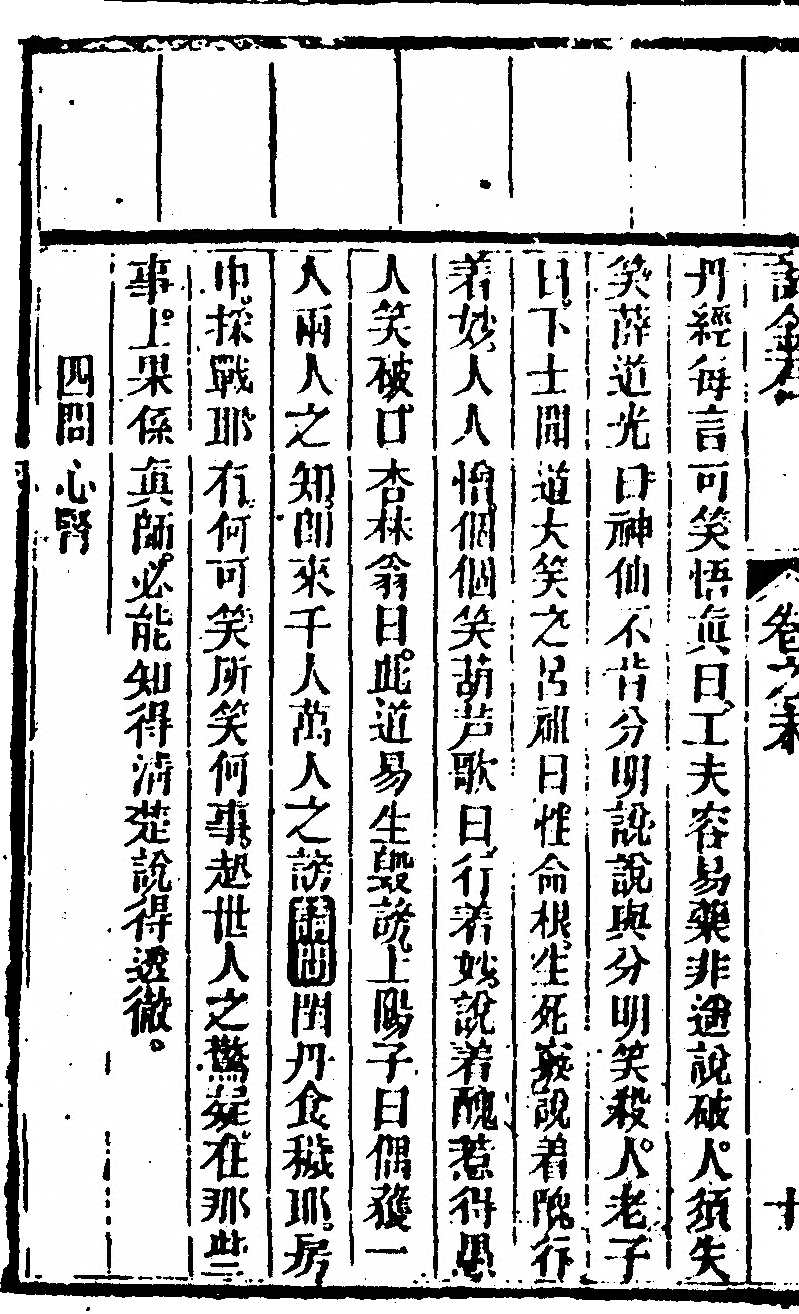 卷之末
十
丹經每言可笑悟眞曰工夫容易藥非遥說破人須失
笑薛道光曰神仙不肯分明說說與分明笑殺人老子
曰下士聞道大笑之呂祖曰性命根生死竅說着醜行
着妙人人憎個個笑葫芦歌曰行着妙說着醜惹得愚
人笑破口杏林翁曰此道易生毀謗上陽子曰偶獲一
人兩人之知卽來千人萬人之謗請問閨丹食穢耶房
中採戰耶有何可笑所笑何事起世人之驚疑在那些
事上果係眞師必能知得淸楚說得透徹
四問心腎